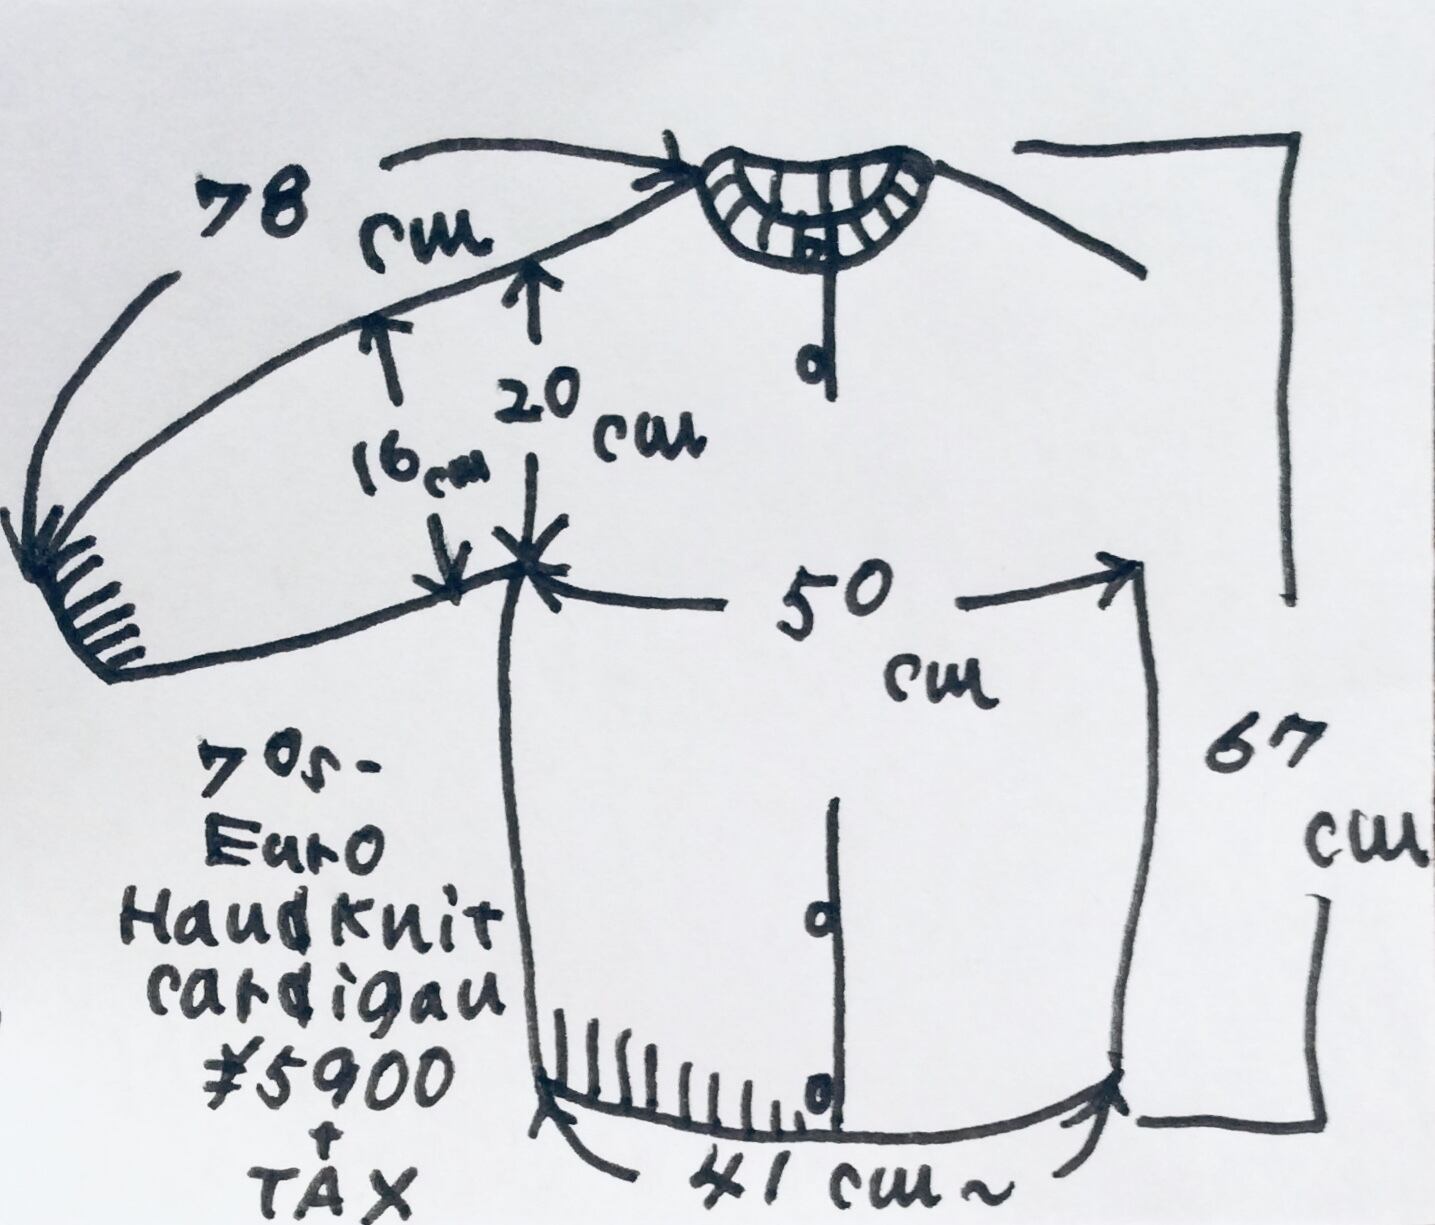 78
cm
20
cm
16cm
50
cm
67
cm
70s-
Euro
Hand Knit
cardigan
¥5900
+
TAX
41cm~